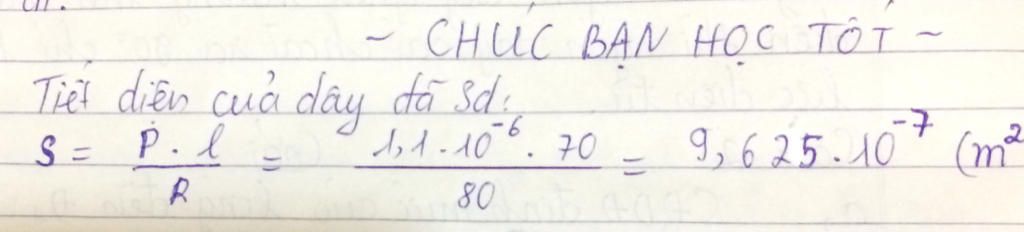 ~ CHÚC BẠN HỌC TỐT ~
Tiết diện của dây đã sd:
S = P . l / R = 1,1 . 10^-6 . 70 / 80 = 9,625 . 10^-7 (m^2